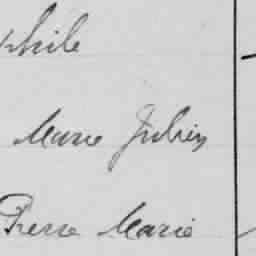 phile
Marie Julien
Pierre Marie